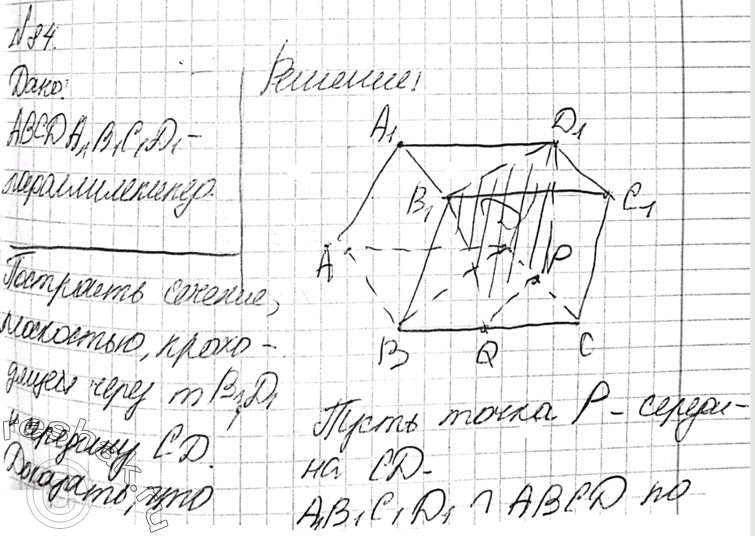 №84.
Дано:
ABCDA₁B₁C₁D₁ -
параллелепипед.
Построить сечение,
плоскостью, прохо-
дящей через т B₁, D₁
и середину CD.
Доказать, что
Решение:
A₁
D₁
B₁
C₁
A
D
P
B
Q
C
Пусть точка P - середи-
на CD.
A₁B₁C₁D₁ ∩ ABCD по